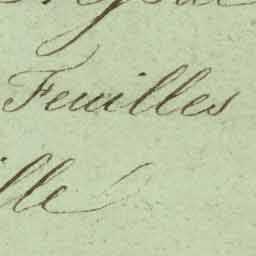 Feuilles
lle